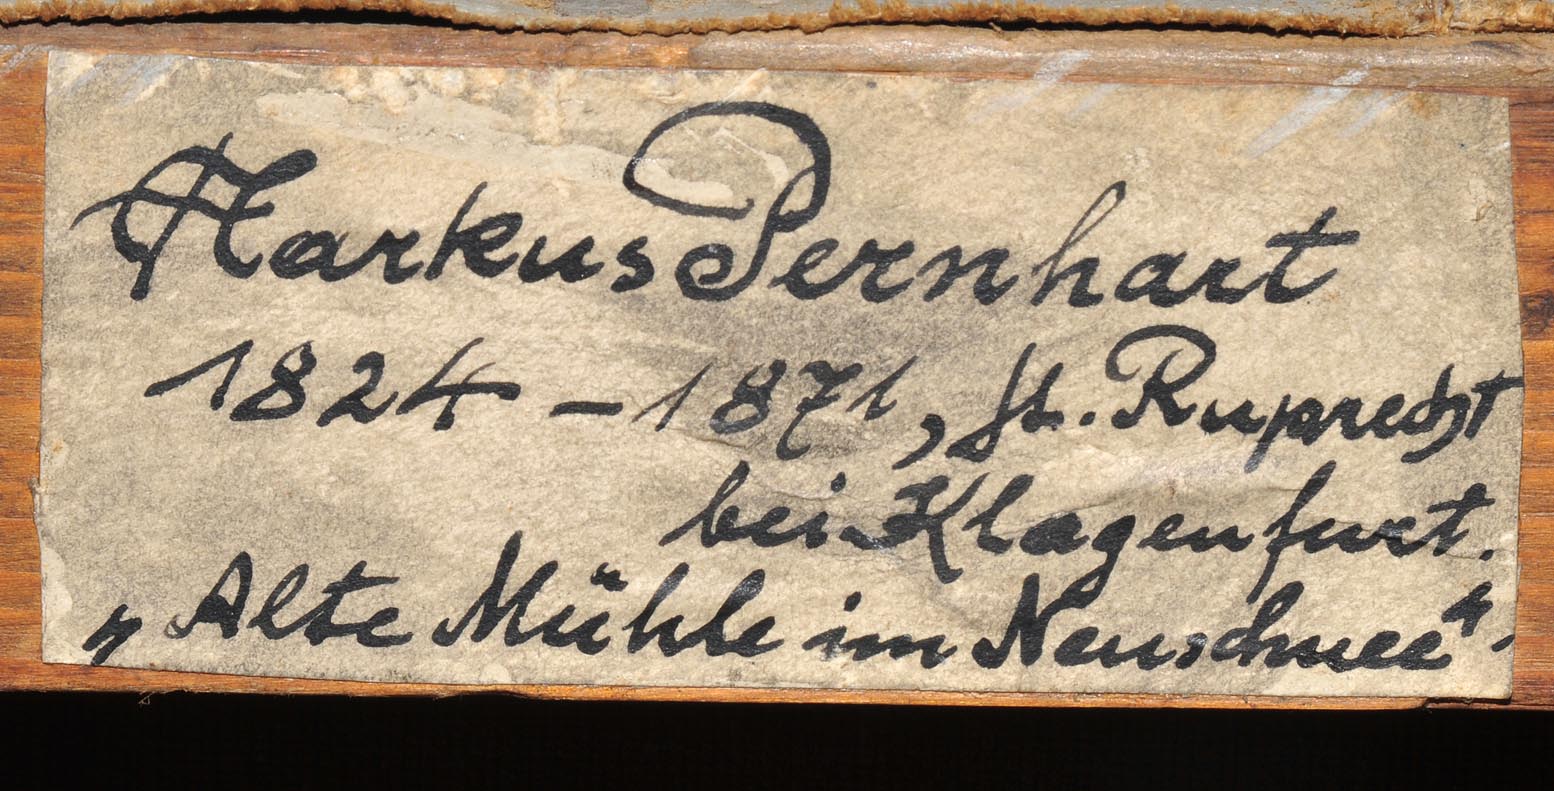 Markus Pernhart
1824 – 1871, St. Ruprecht
bei Klagenfurt.
„Alte Mühle im Neuschnee“.